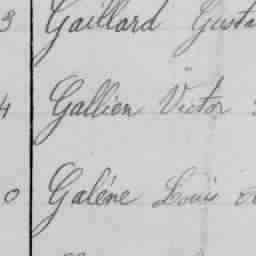 3 Gaillard Gusta
4 Gallien Victor
0 Galéne Louis